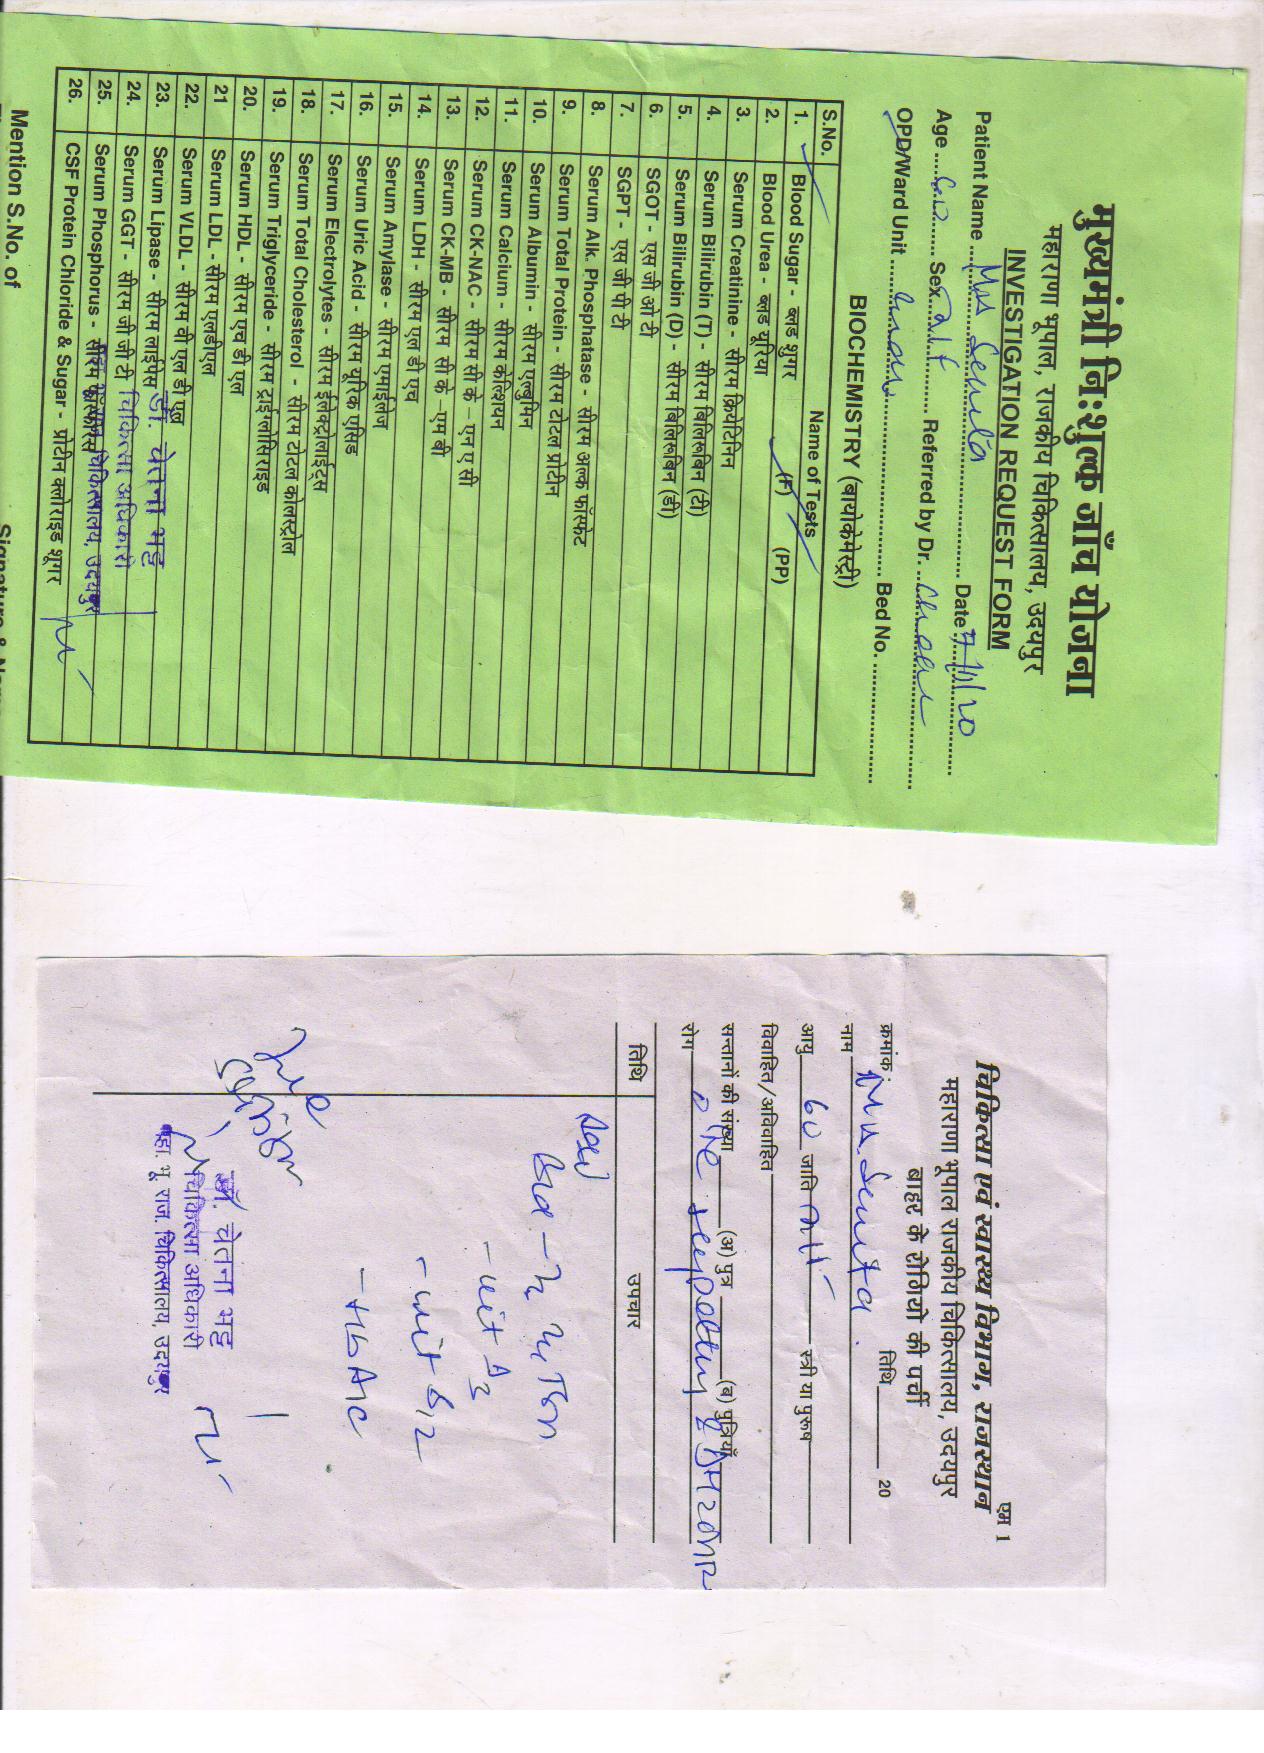 मुख्यमंत्री निःशुल्क जाँच योजना
महाराणा भूपाल, राजकीय चिकित्सालय, उदयपुर
INVESTIGATION REQUEST FORM
Patient Name Mrs Semita Date 7/1/20
Age 60 Sex Referred by Dr.
OPD/Ward Unit Bed No.
BIOCHEMISTRY (बायोकेमेस्ट्री)
S.No. Name of Tests
1. Blood Sugar - ब्लड शुगर (F) (PP)
2. Blood Urea - ब्लड यूरिया
3. Serum Creatinine - सीरम क्रियेटिनिन
4. Serum Bilirubin (T) - सीरम बिलिरूबिन (टी)
5. Serum Bilirubin (D) - सीरम बिलिरूबिन (डी)
6. SGOT - एस जी ओ टी
7. SGPT - एस जी पी टी
8. Serum Alk. Phosphatase - सीरम अल्क फॉस्फेट
9. Serum Total Protein - सीरम टोटल प्रोटीन
10. Serum Albumin - सीरम एल्बुमिन
11. Serum Calcium - सीरम केल्शियन
12. Serum CK-NAC - सीरम सी के – एन ए सी
13. Serum CK-MB - सीरम सी के -एम बी
14. Serum LDH - सीरम एल डी एच
15. Serum Amylase - सीरम एमाईलेज
16. Serum Uric Acid - सीरम यूरिक एसिड
17. Serum Electrolytes - सीरम ईलेक्ट्रोलाईट्स
18. Serum Total Cholesterol - सीरम टोटल कोलस्ट्रोल
19. Serum Triglyceride - सीरम ट्राईग्लेसिराइड
20. Serum HDL - सीरम एच डी एल
21 Serum LDL - सीरम एलडीएल
22. Serum VLDL - सीरम वी एल डी एल
23. Serum Lipase - सीरम लाईपेस
24. Serum GGT - सीरम जी जी टी
25. Serum Phosphorus - सीरम फॉस्फोरस
26. CSF Protein Chloride & Sugar - प्रोटीन क्लोराइड शूगर
डॉ. चेतना भट्ट
चिकित्सा अधिकारी
चिकित्सालय, उदयपुर
Mention S.No. of
एम 1
चिकित्सा एवं स्वास्थ्य विभाग, राजस्थान
महाराणा भूपाल राजकीय चिकित्सालय, उदयपुर
बाहर के रोगियों की पर्ची
क्रमांक : तिथि 20
नाम Mrs. Semita
आयु 60 जाति स्त्री या पुरूष
विवाहित/अविवाहित
सन्तानों की संख्या (अ) पुत्र (ब) पुत्रियाँ
रोग
तिथि उपचार
Adv
- vit D3
- vit B12
- HbA1c
डॉ. चेतना भट्ट
चिकित्सा अधिकारी
महा. भू. राज. चिकित्सालय, उदयपुर